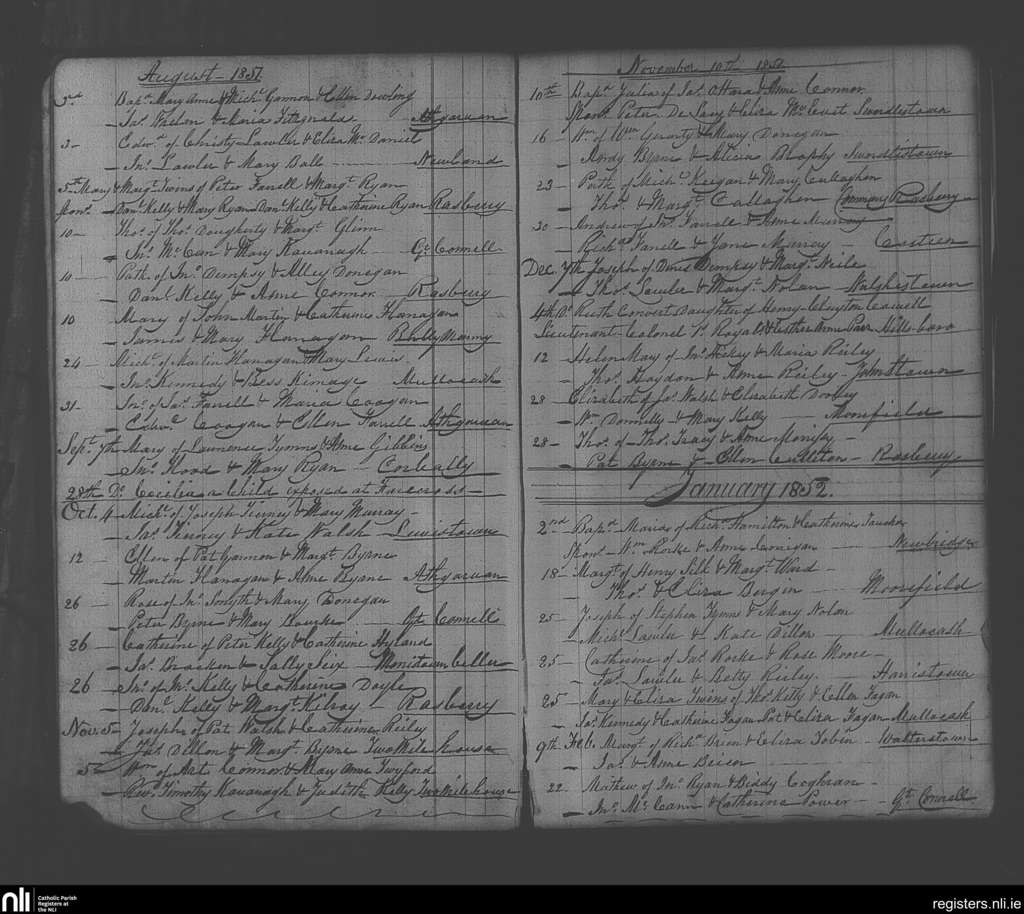 August - 1851
3rd Bapd. Mary Anne of Michl. Gannon & Ellen Dowling
Jas. & Maria Fitzgerald Athgarvan
3 - Edwd. of Christy Lawler & Eliza Mc. Daniel
Jno. Lawler & Mary Ball Newland
5th Mary & Margt. Twins of Peter Farrell & Margt. Ryan
Spons. Danl. Kelly & Mary Ryan Danl. Kelly & Catherine Ryan Rasberry
10 - Thos. of Thos. Dougherty & Margt. Glinn
Jno. Mc. Can & Mary Kavanagh - Gt. Connell
10 - Patk. of Jno. Dempsy & Alley Donegan
Danl. Kelly & Anne Connor - Rasberry
10 Mary of John Martin & Catherine Flanagan
James & Mary Flanagan
24 - Michl. of Martin Flanagan & Mary Lewis
Jno. Kennedy & Bess Mullocash
31 - Jno. of Jas. Farrell & Maria Coogan
Edwd. Coogan & Ellen Farrell Athgarvan
Sept. 7th Mary of Laurence Tymns & Anne Gibbins
Jno. Flood & Mary Ryan - Corbally
28th Do. Cecelia a Child exposed at Faircross -
Oct. 4 - Michl. of Joseph Tierney & Mary Murray -
Jas. Tierney & Kate Walsh - Lewistown
12 - Ellen of Pat Gannon & Margt. Byrne
Martin Flanagan & Anne Byrne Athgarvan
26 - Rose of Jno. Smyth & Mary Donegan
Peter Byrne & Mary Rourke - Gt. Connell
26 - Catherine of Peter Kelly & Catherine Hyland
Jas. Bracken & Sally
26 - Jno. of Jno. Kelly & Catherine Doyle
Danl. Kelly & Margt. Kilroy - Rasberry
Nov. 5 - Joseph of Pat Walsh & Catherine Rieley
Dillon & Margt. Byrne Two Mile house
5 - Wm. of Art Connor & Mary Anne Twyford
Rev. Timothy Kavanagh & Judith Kelly Two Mile house
November 10th 1851
10th Bapd. Julia of Jas. OHara & Anne Connor
Spons. Peter De Lacy & Eliza Mc. Swordlestown
16 - Wm. of Wm. Geraty & Mary Donegan
Andy Byrne & Alicia Brophy Swordlestown
23 - Patk. of Michl. Keegan & Mary Callaghan
Thos. & Margt. Callaghan Common, Rasberry
30 - Andrew of Jn. Farrell & Anne Murray
Richd. Farrell & Jane Murray -
Dec. 7th Joseph of Denis Dempsy & Margt. Neile
Thos. Lawler & Margt. Nolan - Walshestown
4th Do. Ruth Convert Daughter of Henry Clinton
Lieutenant Colonel 1st Royals & Esther Anne Parr Millbara
12 - Helen Mary of Jno. Hickey & Maria Rieley
Thos. Haydon & Anne Rieley - Johnstown
28 - Elizabeth of Jas. Walsh & Elizabeth Dooley
Wm. Donnelly & Mary Kelly - Morefield
28 - Thos. of Thos. Tracy & Anne
Pat Byrne & Ellen - Rasberry
January 1852.
2nd Bapd. Maria of Richd. Hamilton & Catherine
Spons. Wm. Rorke & Anne Lonigan - Newbridge
18 - Margt. of Henry Silk & Margt. Ward -
Thos. & Eliza Bergin - Moorefield
25 - Joseph of Stephen Tymns & Mary Nolan
Michl. Lawler & Kate Dillon - Mullocash
25 - Catherine of Jas. Rorke & Rose Moore -
Jas. Lawler & Betty Rieley. Harristown
25 - Mary & Eliza Twins of Thos. Kelly & Ellen Fagan
Jas. Kennedy & Catherine Fagan Pat & Eliza Fagan Mullocash
9th Feb. Margt. of Richd. Brien & Eliza Tobin - Walterstown
Jas. & Anne
22 - Mathew of Jno. Ryan & Biddy Coghran -
Jno. Mc. Cann & Catherine Power - Gt. Connell
nli Catholic Parish
Registers at
the NLI
registers.nli.ie